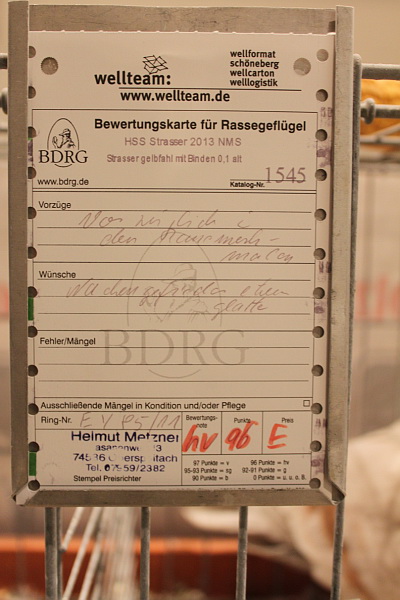 wellteam:
wellformat
schöneberg
wellcarton
welllogistik
www.wellteam.de
BDRG
Bewertungskarte für Rassegeflügel
HSS Strasser 2013 NMS
Strasser gelbfahl mit Binden 0,1 alt
www.bdrg.de
Katalog-Nr. 1545
Vorzüge
den
Wünsche
BDRG
Fehler/Mängel
Ausschließende Mängel in Kondition und/oder Pflege
Ring-Nr.
Bewertungs-
note
Punkte
Preis
hv 96 E
Helmut Metzner
74536
Tel. 07959/2382
Stempel Preisrichter
97 Punkte = v
96 Punkte = hv
95-93 Punkte = sg
92-91 Punkte = g
90 Punkte = b
0 Punkte = u. o. B.